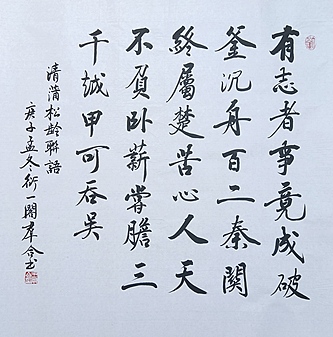 有志者事竟成破
釜沉舟百二秦関
終屬楚苦心人天
不負卧薪嘗膽三
千越甲可吞吴
清蒲松龄聯語
庚子孟冬